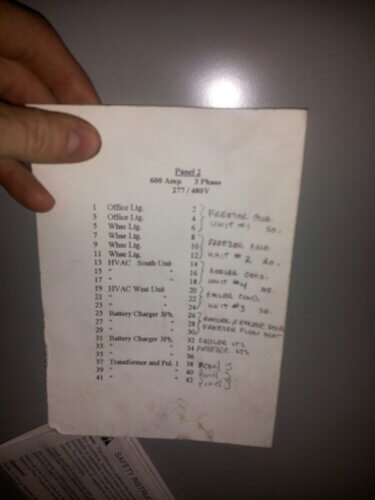 Panel 2
600 Amp 3 Phase
277 / 480V
1 Office Ltg. 2
3 Office Ltg. 4 FREEZER COND.
5 Whse Ltg. 6 UNIT #1 50.
7 Whse Ltg. 8
9 Whse Ltg. 10 FREEZER COND
11 Whse Ltg. 12 UNIT # 2
13 HVAC South Unit 14
15 " " 16 COOLER COND.
17 " " 18 UNIT #4
19 HVAC West Unit 20
21 " " 22 COOLER COND.
23 " " 24 UNIT #3 50.
25 Battery Charger 3Ph. 26
27 " " 28 COOLER/FREEZER DOOR
29 " " 30 FREEZER FLOOR HEAT
31 Battery Charger 3Ph. 32 COOLER LTS
33 " " 34 FREEZER LTS
35 " " 36
37 Transformer and Pnl. 1 38
39 " " 40
41 " " 42
SAFETY INSTR